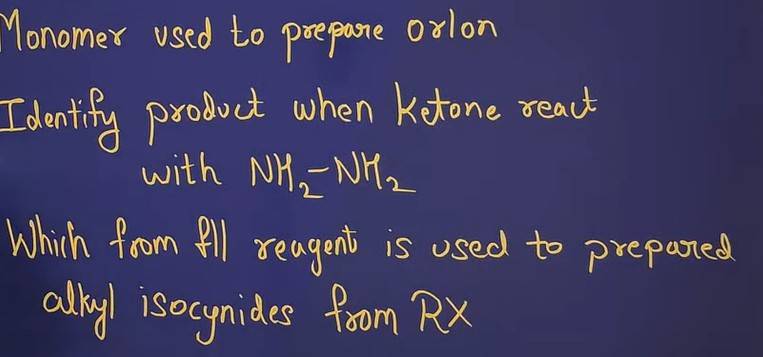 Monomer used to prepare orlon
Identify product when ketone react
with NH₂-NH₂
Which from fll reagent is used to prepared
alkyl isocynides from RX